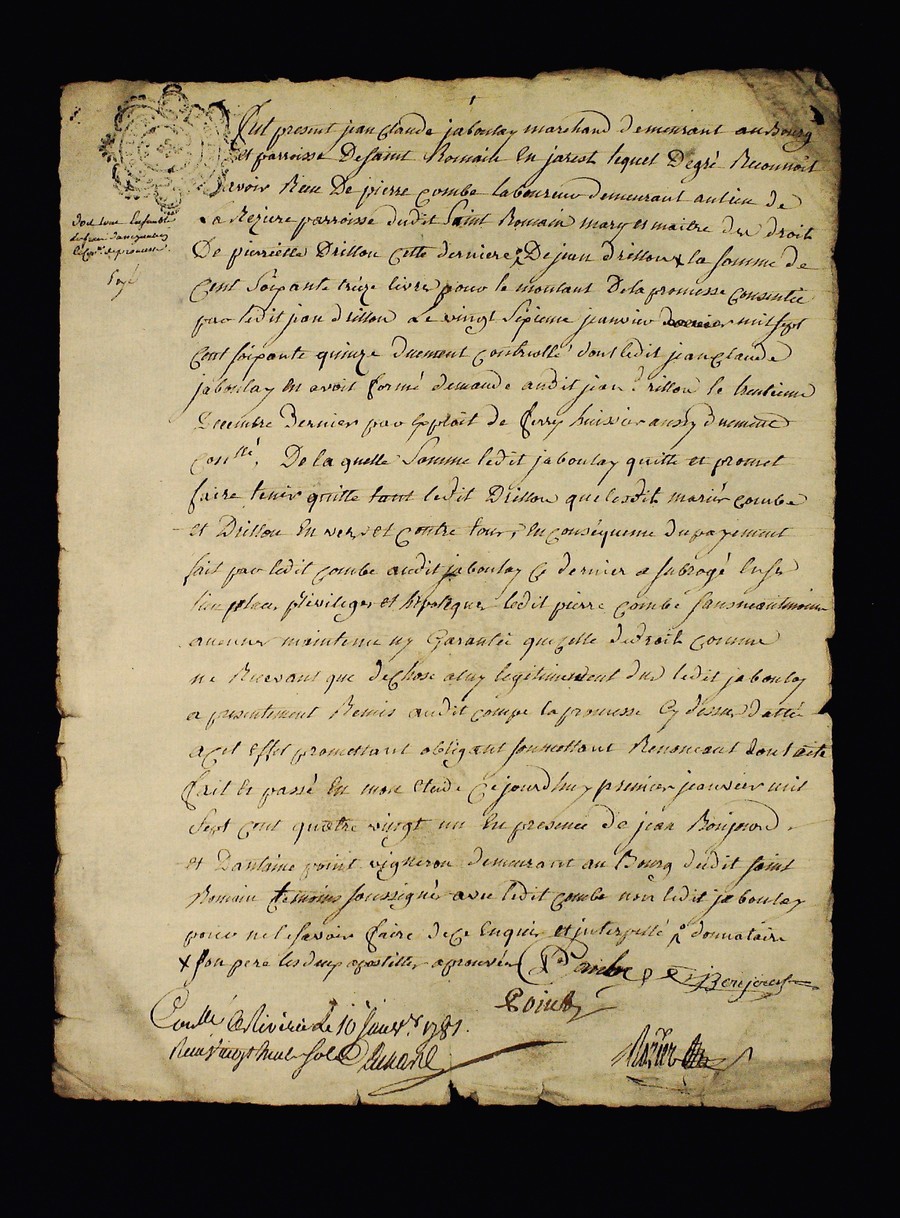 Fut present jean claude jaboulay marchand demeurant au Bourg
et parroisse De saint Romain En jarest lequel De gré Reconnoit
avoir Reçu De pierre Combe laboureur demeurant au lieu de
La parroisse dudit Saint Romain mary et maitre des droit
De pierrette Drillon cette derniere De jean drillon x la somme de
Cent soixante treize livres pour le montant De la promesse consentie
par ledit jean drillon Le vingt septieme janvier mil sept
Cent soixante quinze duement controllé dont ledit jean claude
jaboulay en avoit formé demande audit jean Drillon le trentieme
Decembre Dernier par Exploit de ferry huissier aussy duement
conllé. De la quelle Somme ledit jaboulay quitte et promet
faire tenir quitte tant ledit Drillon que lesdit mariés combe
et Drillon En vers et contre tous, en conséquence du payement
fait par ledit combe audit jaboulay Ce dernier a subrogé
lieu place, privileges et hipoteques ledit pierre combe sans neantmoins
aucunes maintenue ny Garantie que celle de droit comme
ne Recevant que de chose a luy legitimement due ledit jaboulay
a presentement Remis audit combe la promesse Cy dessus dattée
a cet effet promettant obligeant soumettant Renoncant dont acte
fait et passé En mon etude Cejourdhuy premier janvier mil
sept cent quatre vingt un En presence de jean Bonjour
et D'antoine point vigneron demeurant au Bourg dudit saint
Romain temoins soussignés avec ledit combe non ledit jaboulay
pour ne le savoir faire de ce Enquis et interpellé donnataire
x son pere les deux apostilles aprouvées Combe Bonjour
Point
Conllé A Riverie Le 10 janv.r 1781.
Reçu vingt huit sols